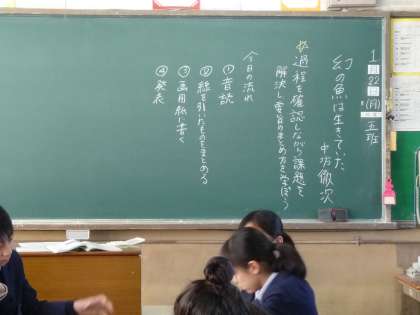 1月22日(月)
五班
幻の魚は生きていた
中坊徹次
☆過程を確認しながら課題を
解決し、要旨のまとめ方を学ぼう
今日の流れ
①音読
②線を引いたものをまとめる
③画用紙に書く
④発表